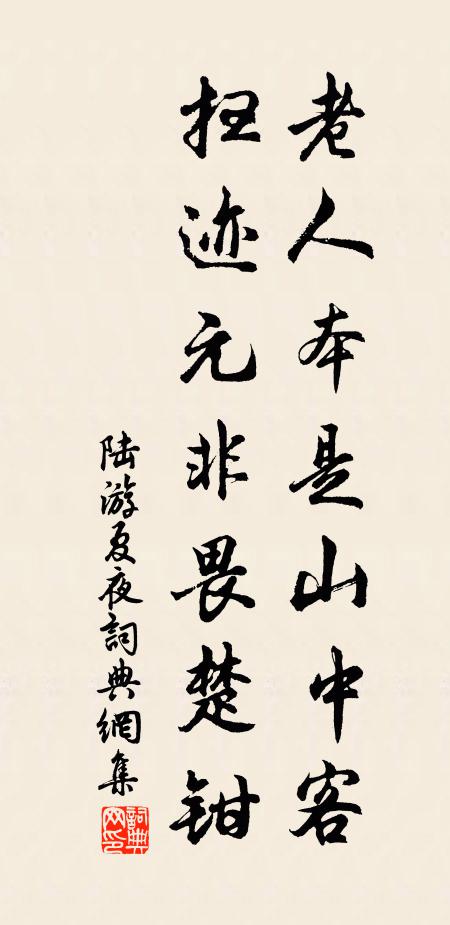 老人本是山中客
扫迹元非畏楚钳
陆游夏夜詞典網集
詞典
网印